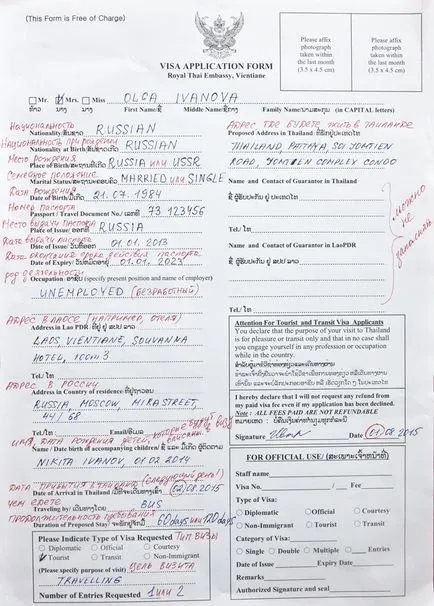 (This Form is Free of Charge)
VISA APPLICATION FORM
Royal Thai Embassy, Vientiane
Please affix
photograph
taken within
the last month
(3.5 x 4.5 cm)
Please affix
photograph
taken within
the last month
(3.5 x 4.5 cm)
Mr. Mrs. Miss OLGA IVANOVA
ທ້າວ ນາງ ນາງ First Name/ຊື່ Middle Name/ຊື່ກາງ Family Name/ນາມສະກຸນ (in CAPITAL letters)
Национальность
Nationality/ RUSSIAN
Национальность при рождении
Nationality at Birth/ RUSSIAN
Место рождения
Place of Birth/ RUSSIA или USSR
Семейное положение
Marital Status/ MARRIED или SINGLE
Дата рождения
Date of Birth/ 21.07.1984
Номер паспорта
Passport / Travel Document No./ 73 123456
Место выдачи паспорта
Place of Issue/ RUSSIA
Дата выдачи паспорта
Date of Issue/ 01.01.2013
Дата окончания срока действия паспорта
Date of Expiry/ 01.01.2023
род деятельности
Occupation (specify present position and name of employer)
UNEMPLOYED (безработный)
Адрес в Лаосе (например, отеля)
Address in Lao PDR
LAOS VIENTIANE, SOUVANNA
HOTEL, room 3
Tel./
Адрес в России
Address in Country of residence
RUSSIA, MOSCOW, MIRA STREET,
44/68
Tel./ Email/
имя, дата рождения детей, которые будут вписаны в визу
Name / Date of birth of accompanying children/
NIKITA IVANOV, 01.02.2014
Дата прибытия в Таиланд (следующий день!)
Date of Arrival in Thailand 02.08.2015
чем едете
Traveling by/ BUS
Продолжительность пребывания
Duration of Proposed Stay/ 60 days или 120 days
Please Indicate Type of Visa Requested Тип визы
Diplomatic Official Courtesy
Tourist Transit Non-Immigrant
(Please specify purpose of visit) Цель визита
TRAVELLING
Number of Entries Requested 1 или 2
Адрес где будете жить в Таиланде
Proposed Address in Thailand
THAILAND, PATTAYA, SOI JOMTIEN
ROAD, JOMTIEN COMPLEX CONDO
Name and Contact of Guarantor in Thailand
Tel./
Name and Contact of Guarantor in LaoPDR
Tel./
можно не заполнять
Attention For Tourist and Transit Visa Applicants
You declare that the purpose of your visit to Thailand
is for pleasure or transit only and that in no case shall
you engage yourself in any profession or occupation
while in the country.
I hereby declare that I will not request any refund
from my paid visa fee even if my application has been declined.
Note : ALL FEES PAID ARE NOT REFUNDABLE
Signature Date 01.08.2015
FOR OFFICIAL USE/
Staff name
Visa No. / Fee
Type of Visa:
Diplomatic Official Courtesy
Non-Immigrant Tourist Transit
Category of Visa:
Single Double Multiple Entries
Date of Issue Expiry Date
Remarks
Authorized Signature and seal